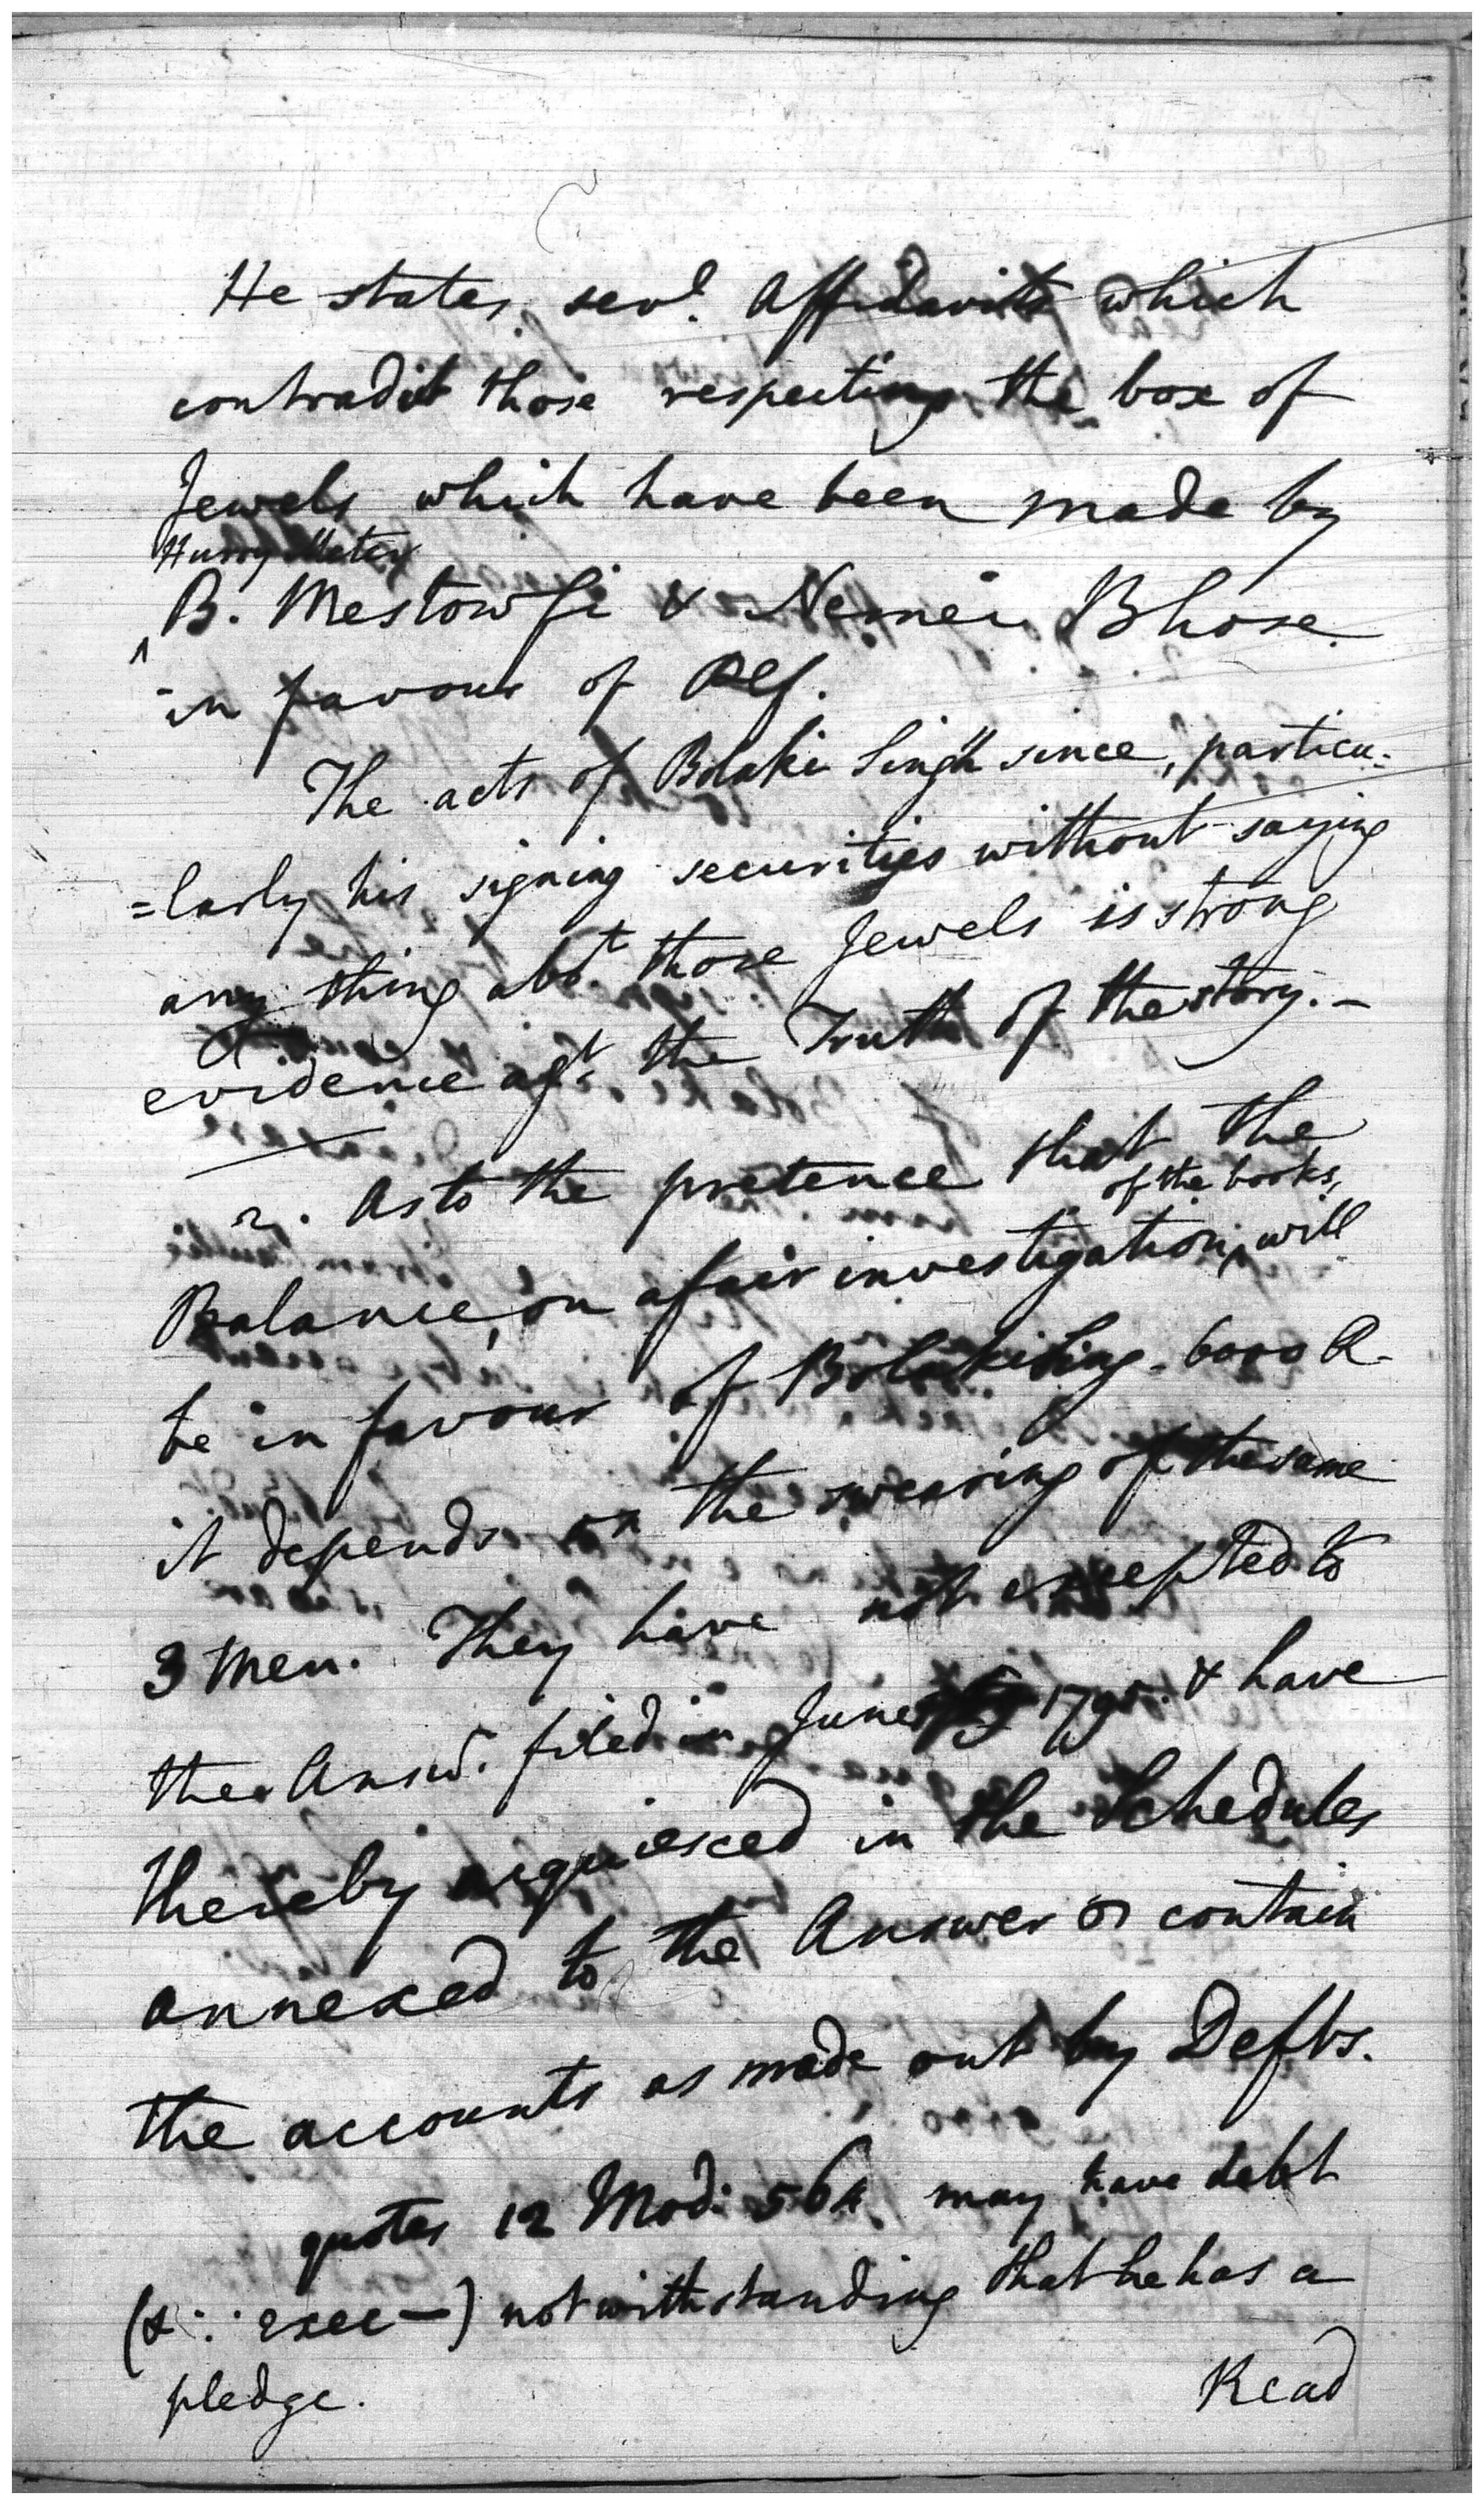 He states sevl. Affidavits which
contradict those respecting the box of
Jewels which have been made by
Hurry
B. Mestowfi & Nemei Bhose
in favour of
The acts of Bolaki Singh since, particu-
=larly his signing securities without saying
any thing abt. those Jewels is strong
evidence agt. the Truth of the story. —
2. As to the pretence that the
of the books,
Balance, on a fair investigation, will
be in favour of Bolaki Sing - 6000 R.
it depends on the swearing of the same
3 Men. They have not excepted to
the Answ. filed in June 1795. & have
thereby acquiesced in the Schedules
annexed to the Answer contain
the accounts as made out by Defts.
quotes 12 Mod: 564. may have debt
(& ∵ exec—) notwithstanding that he has a
pledge.
Read